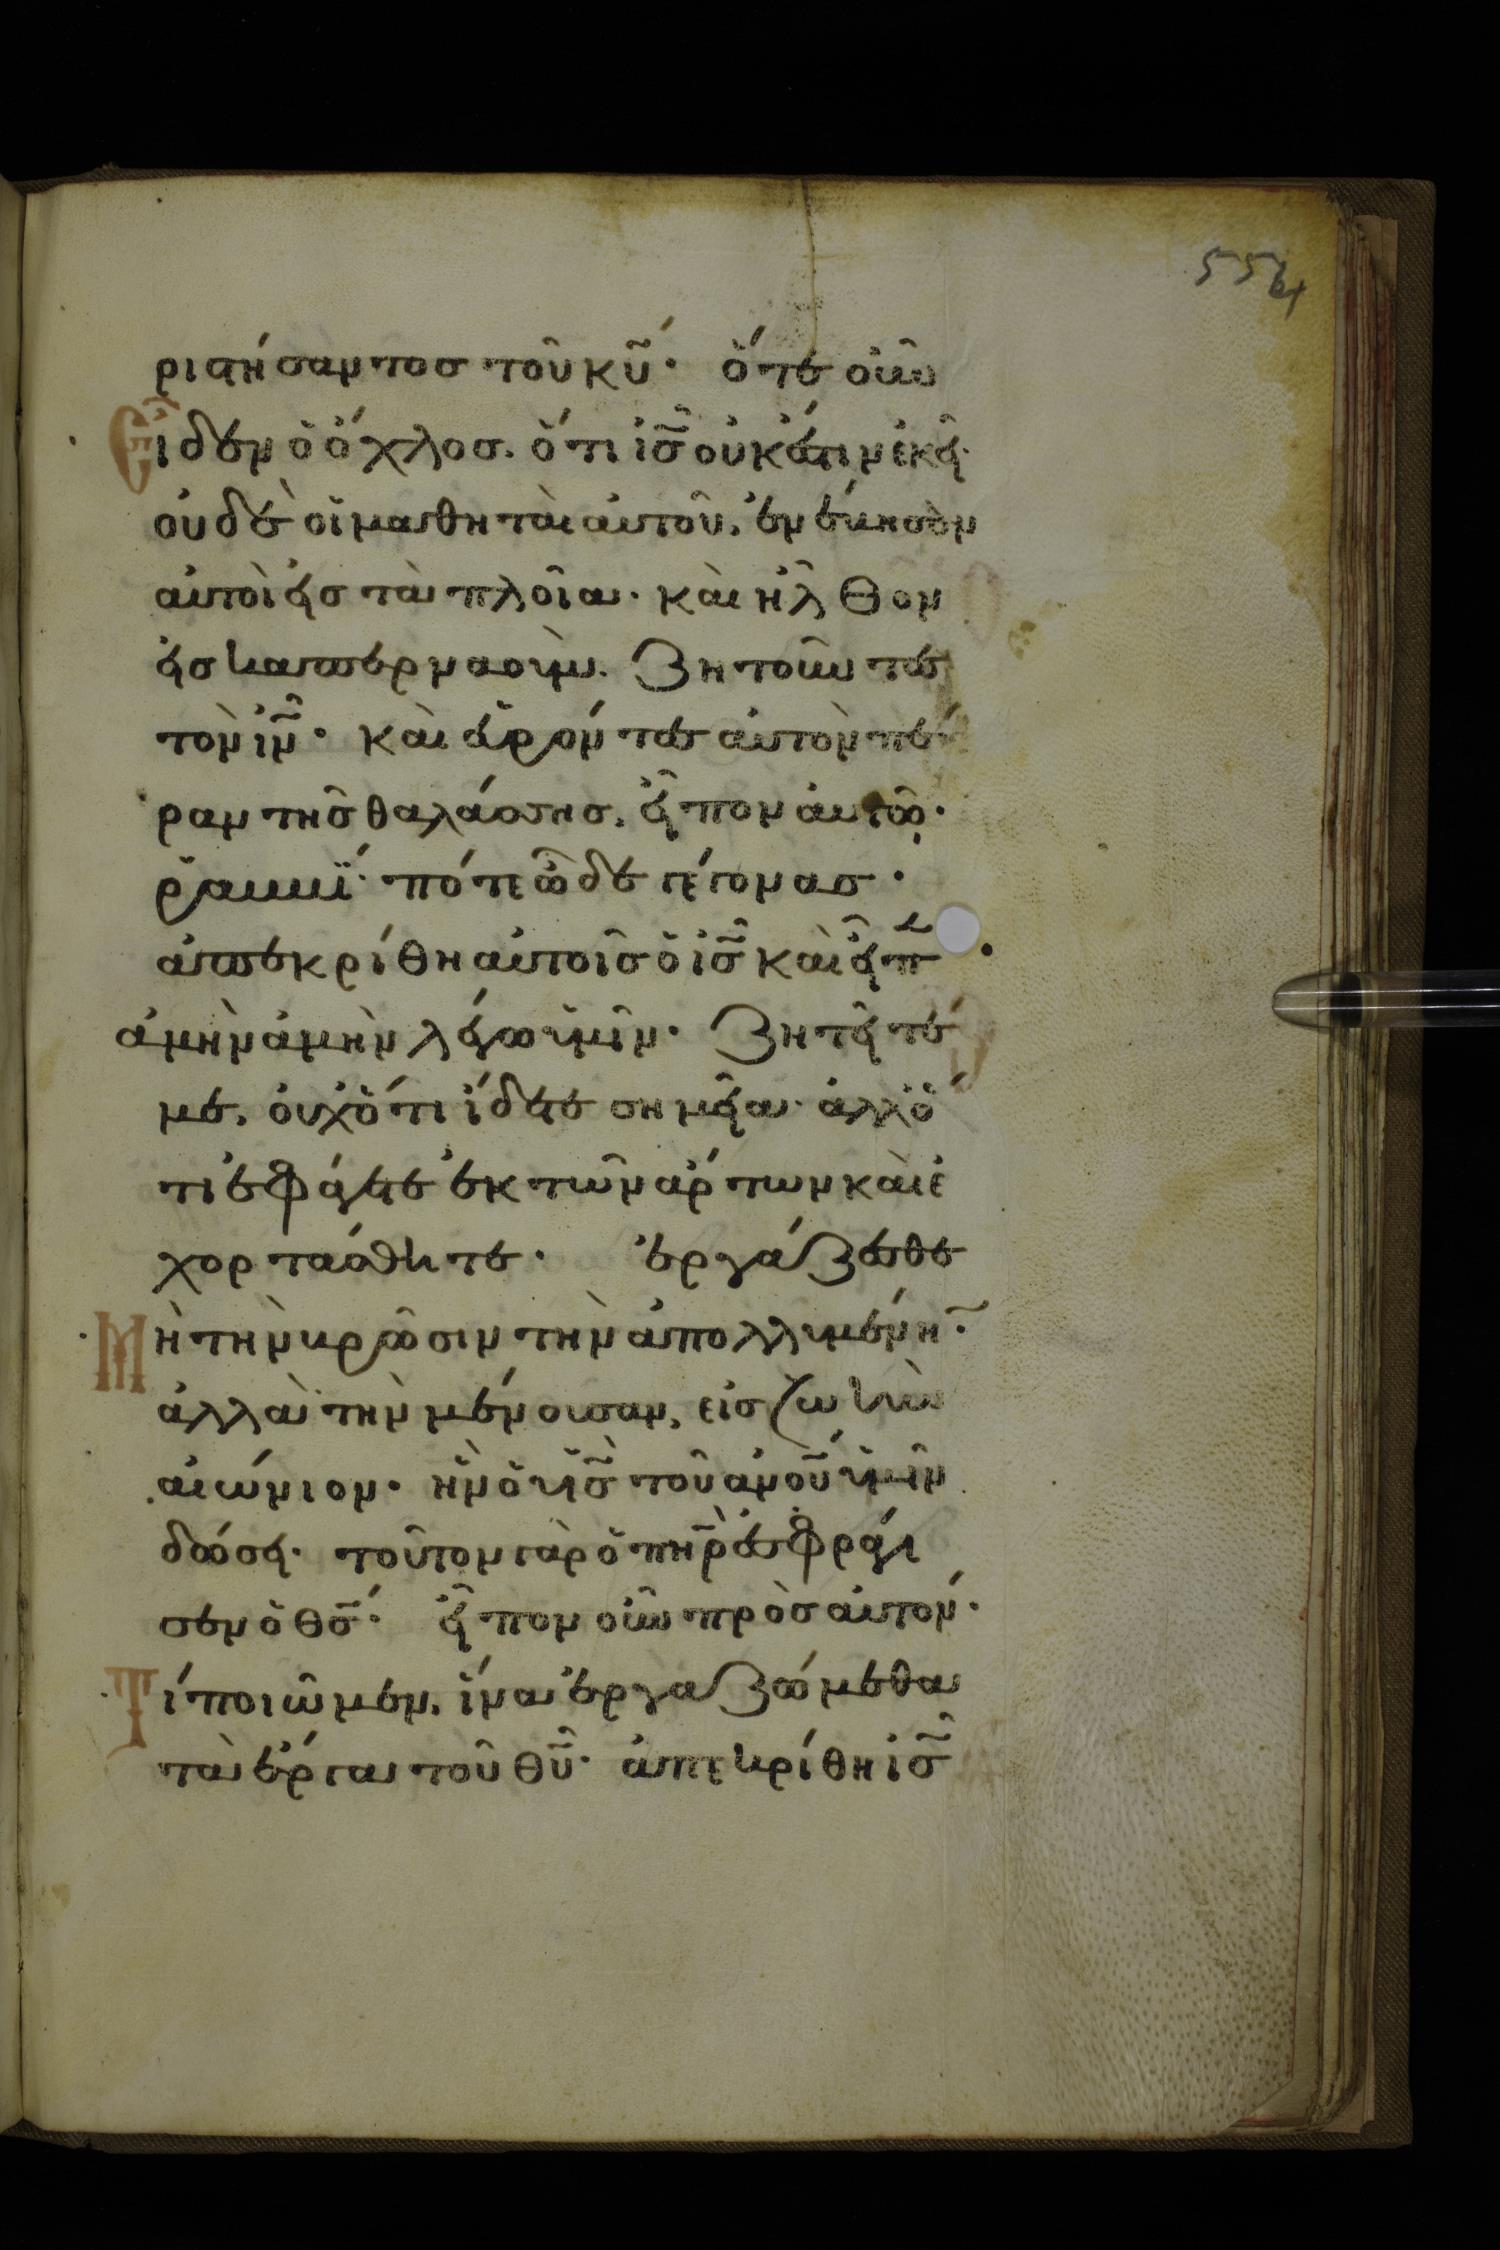 554
ριστήσαντος τοῦ κῡ· ὅτε οὖν
εἶδεν ὁ ὄχλος. ὅτι ἰς̄ οὐκ ἔστιν ἐκεῖ·
οὐδὲ οἱ μαθηταὶ αὐτοῦ, ἐνέβησὸν
αὐτοὶ εἰς τὰ πλοῖα· καὶ ἦλθον
εἰς καπερναοὺμ. ζητοῦντες
τὸν ἰν̄· καὶ εὑρόντες αὐτὸν πέ
ραν τῆς θαλάσσης, εἶπον αὐτῶ·
ῥαββΐ· πότε ὧδε γέγονας·
ἀπεκρίθη αὐτοῖς ὁ ἰς̄ καὶ εἶπ̄
ἀμὴν ἀμὴν λέγω ὑμῖν· ζητεῖτέ
με, οὐχ ὅτι ἴδετε σημεῖα· ἀλλ' ὅ
τι ἐφάγετε ἐκ τῶν ἄρτων καὶ ἐ
χορτάσθητε· ἐργάζεσθε
μὴ τὴν βρῶσιν τὴν ἀπολλυμένη̄·
ἀλλὰ τὴν μένουσαν, εἰς ζωὴν
αἰώνιον· ἣν ὁ υἱς̄ τοῦ ἀνοῦ̄ ὑμῖν
δώσει· τοῦτον γὰρ ὁ πηρ̄ ἐσφράγι
σεν ὁ θς̄· εἶπον οὖν πρὸς αὐτόν·
Τί ποιῶμεν, ἵνα ἐργαζώμεθα
τὰ ἔργα τοῦ θῡ· ἀπεκρίθη ἰς̄